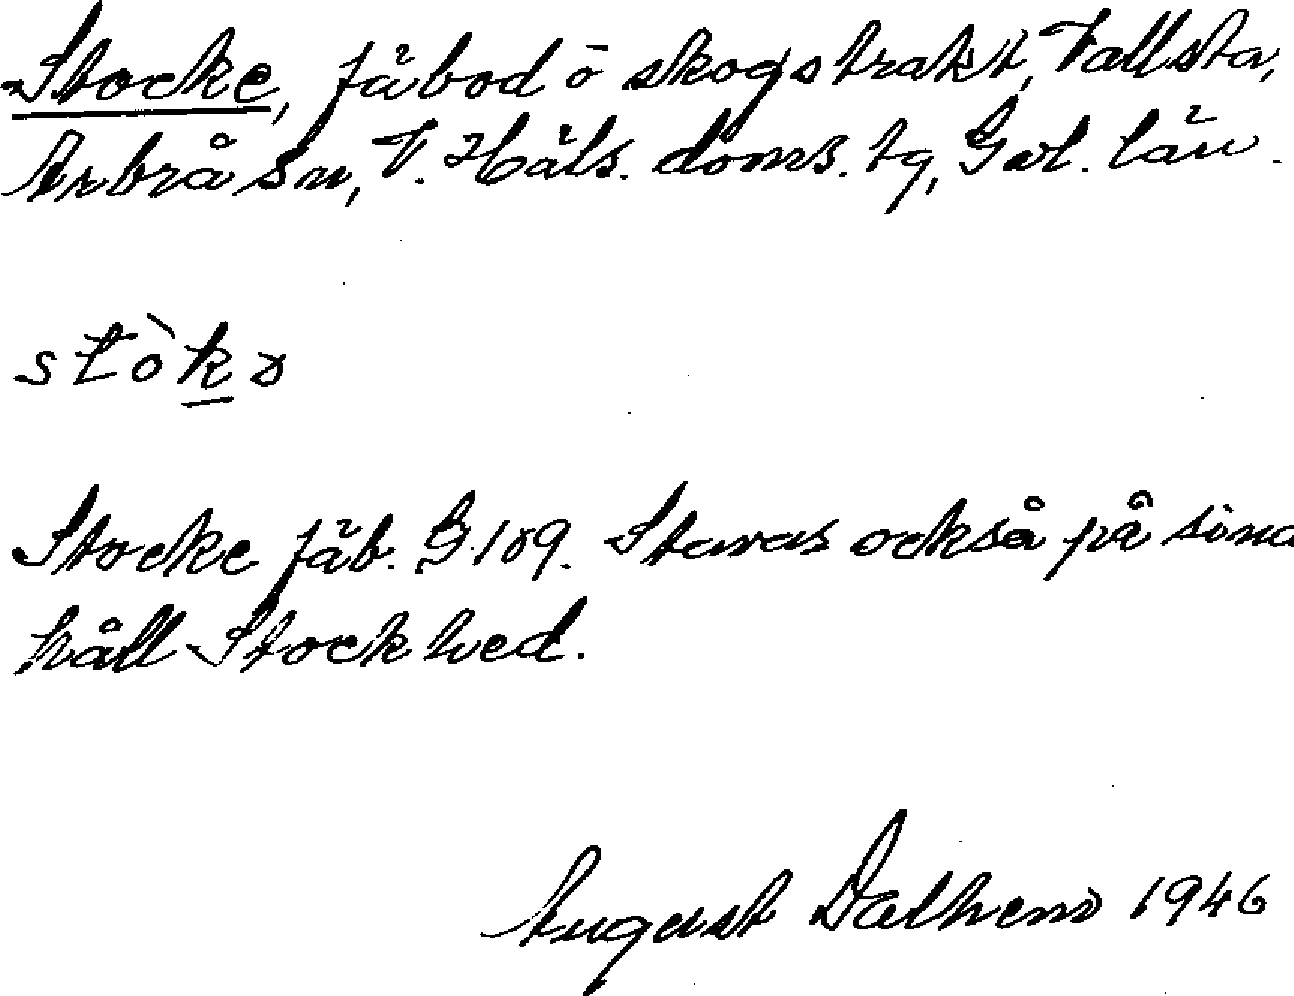 Stocke, fäbod o skogstrakt, Vallsta,
Arbrå sn, V. Häls. doms. tg, Gvl. län.
stòkə
Stocke fäb. G. 109. Stavas också på sina
håll Stockhed.
August Dalhem 1946